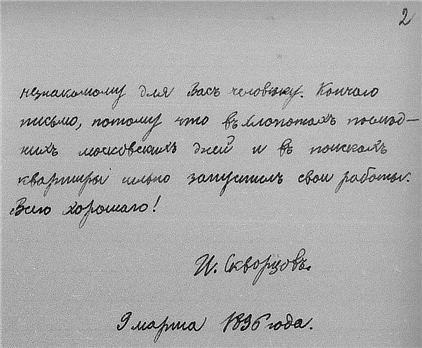 2
незнакомому для Васъ человѣку. Кончаю
письмо, потому что въ хлопотахъ послѣд-
нихъ московскихъ дней и въ поискахъ
квартиры сильно запустилъ свои работы.
Всего хорошаго!
И. Скворцовъ.
9 марта 1896 года.